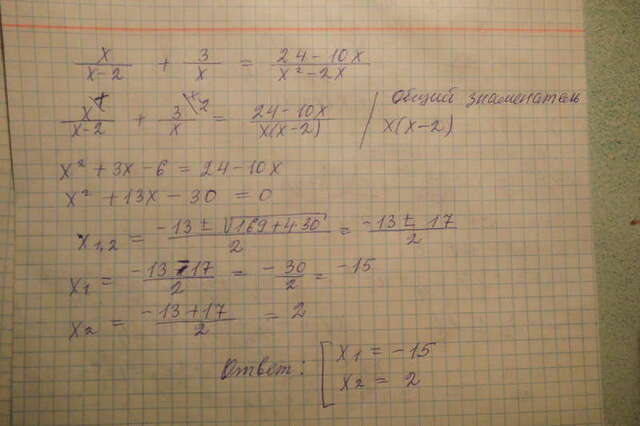 x/(x-2) + 3/x = (24-10x)/(x²-2x)
x/(x-2) + 3/x = (24-10x)/(x(x-2)) | Общий знаменатель
x(x-2)
x² + 3x - 6 = 24-10x
x² + 13x - 30 = 0
x1,2 = (-13 ± √(169+4·30))/2 = (-13 ± 17)/2
x1 = (-13-17)/2 = -30/2 = -15
x2 = (-13+17)/2 = 2
Ответ: [ x1 = -15
x2 = 2